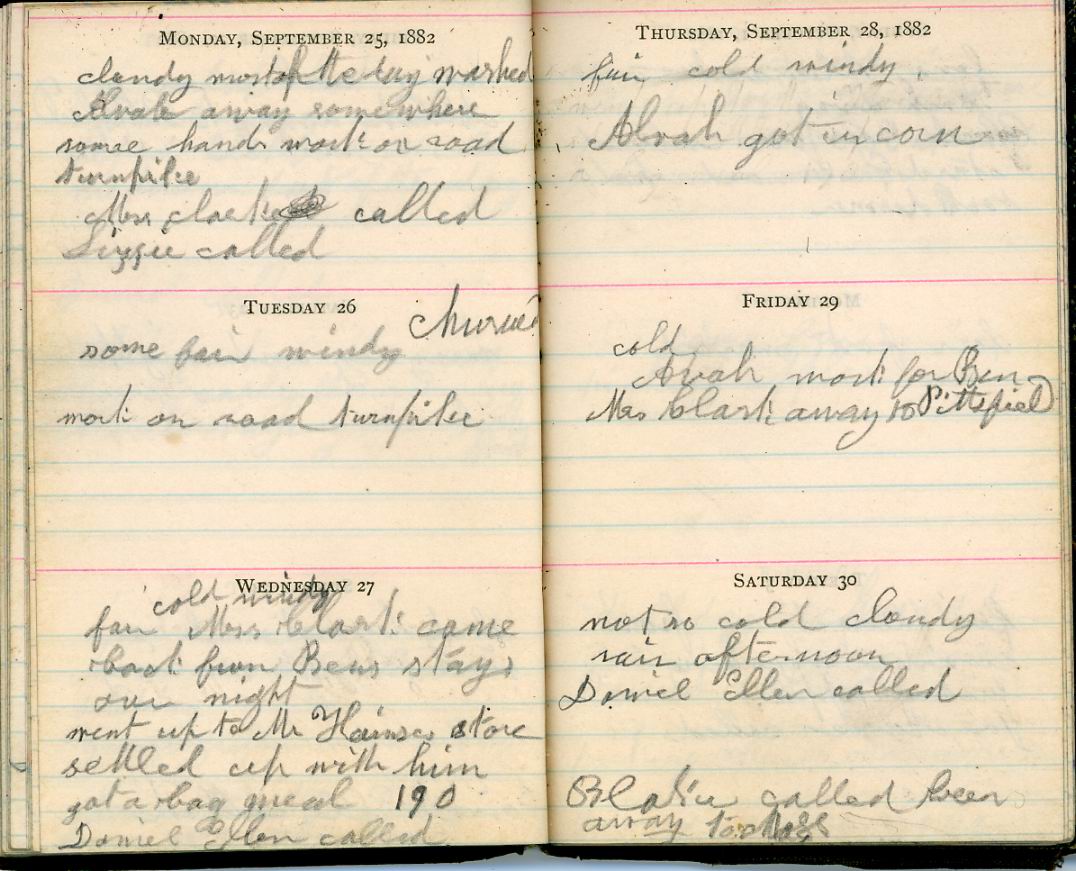 MONDAY, SEPTEMBER 25, 1882
cloudy most of the day washed
Alvah away somewhere
some hands work on road
turnpike
Mrs Clark called
Lizzie called
TUESDAY 26
churned
some fair windy
work on road turnpike
WEDNESDAY 27
cold windy
fair Mrs Clark came
back from Bens stays
over night
went up to Mr Haines store
settled up with him
got a bag meal 190
Daniel Ellen called
THURSDAY, SEPTEMBER 28, 1882
fair cold windy
Alvah got in corn
FRIDAY 29
cold
Alvah work for Ben
Mrs Clark away to Pittsfield
SATURDAY 30
not so cold cloudy
rain afternoon
Daniel Ellen called
called been
away